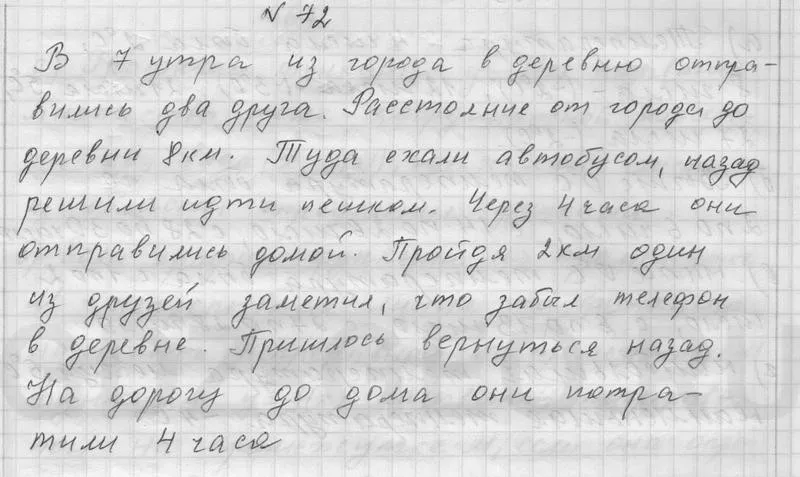 № 72
В 7 утра из города в деревню отпра-
вились два друга. Расстояние от города до
деревни 8 км. Туда ехали автобусом, назад
решили идти пешком. Через 4 часа они
отправились домой. Пройдя 2 км один
из друзей заметил, что забыл телефон
в деревне. Пришлось вернуться назад.
На дорогу до дома они потра-
тили 4 часа